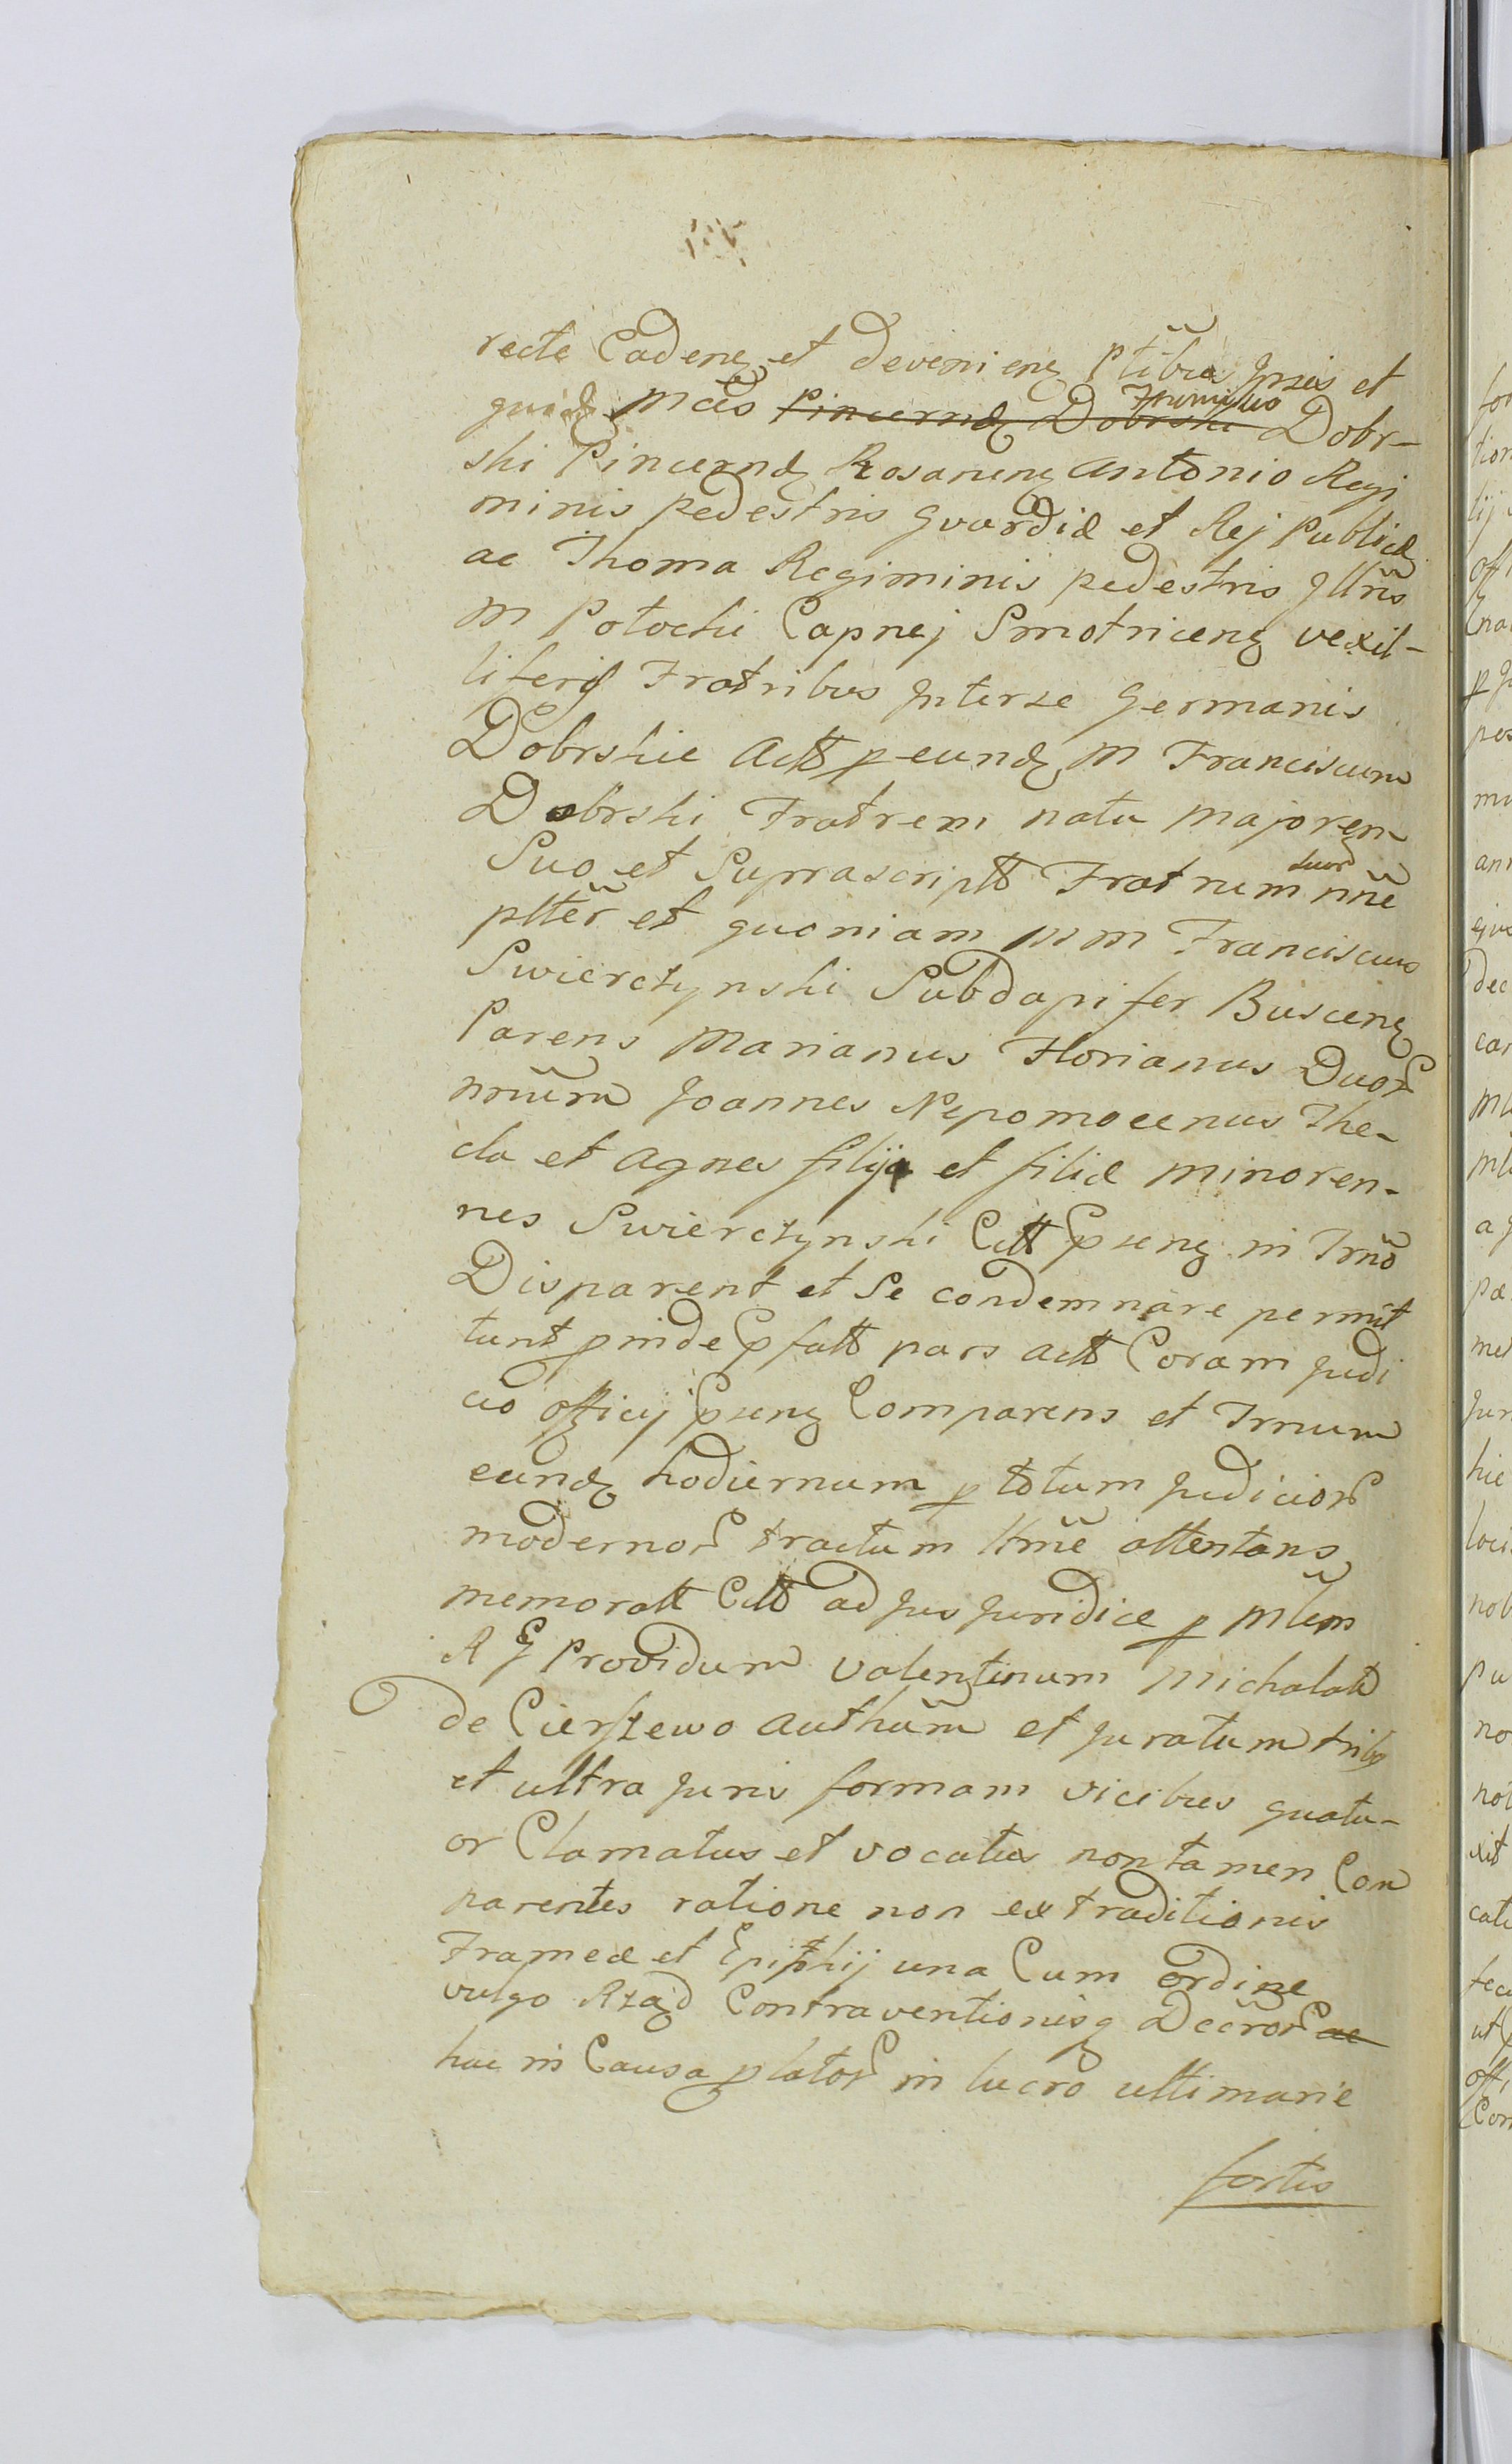 recte Cadenꝫ et Devenienꝫ Ptibus Ipsis et
quidꝫ Mcis Pincernæ Dobrski Dobr-
ski Pincernæ Rosanenꝫ Antonio Regi
minis pedestris Gvardiæ et Rej Publicæ
ac Thoma Regiminis pedestris Illris
M Potocki Capnej Smotricenꝫ vexil-
liferis Fratribus Interse Germanis
Dobrskie Actt ꝑ eundꝫ M Franciscum
Dobrski Fratrem natu Majorem
Suo et Suprascriptt Fratrum suor nne
pltter et quoniam MM Franciscus
Swierczynski Subdapifer Buscenꝫ
Parens Marianus Florianus Duor
nnium Joannes Nepomocenus The-
cla et Agnes filij et filiæ minoren-
nes Swierczynski Citt Ꝑsenꝫ in Trno
Disparent et Se condemnare permit
tunt ꝓinde Ꝑfatt pars Actt Coram Judi
cio officij Ꝑsenꝫ Comparens et Trnum
eundꝫ hodiernum ꝑ totum Judicior
modernor tractum ltme attentans
memoratt Citt ad Jus Juridice ꝑ Mlem
R G Providum Valentinum Michalak
de Cierszewo Authum et Juratum trib
et ultra Juris formam vicibus quatu-
or Clamatus et vocatus non tamen Com
parentes ratione non extraditionis
Frameæ et Ephippij una Cum ordine
vulgo Rząd Contraventionisq Decror ac
hac in Causa ꝑlator in lucro ultimarie
fortis